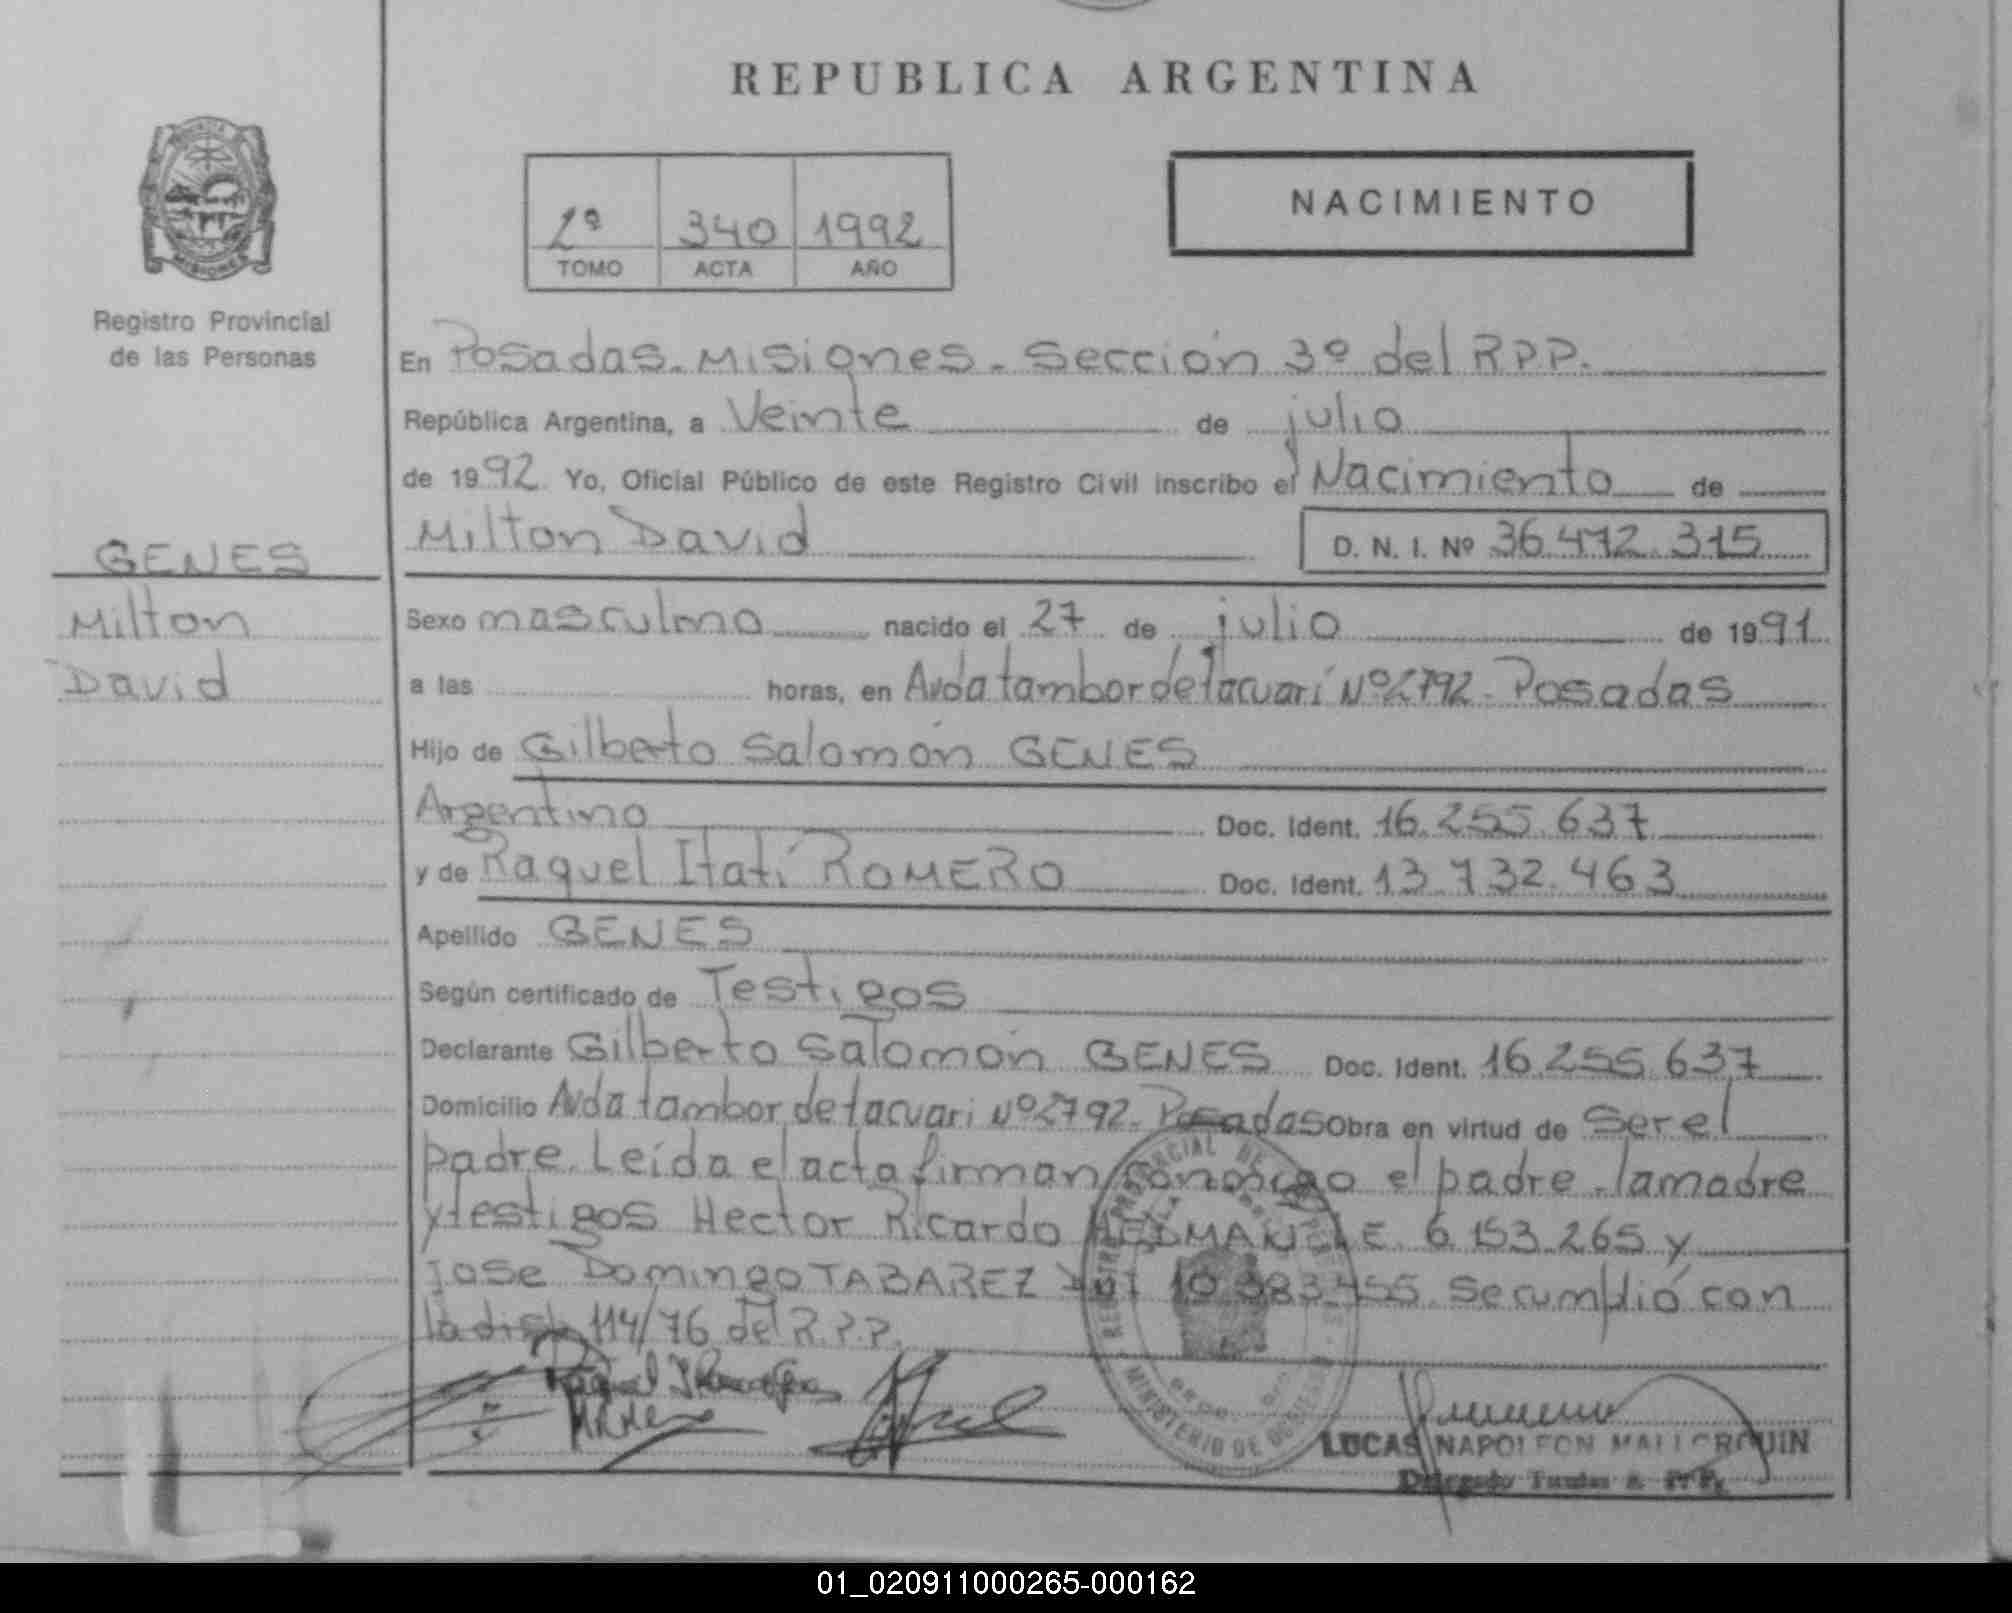 REPUBLICA ARGENTINA
MISIONES
Registro Provincial
de las Personas
2º 340 1992
TOMO ACTA AÑO
NACIMIENTO
GENES
Milton
David
En Posadas. Misiones. Sección 3º del R.P.P.
República Argentina, a Veinte de julio
de 1992 Yo, Oficial Público de este Registro Civil inscribo el Nacimiento de
Milton David D. N. I. Nº 36.472.315
Sexo masculino nacido el 27 de julio de 1991
a las horas, en Avda tambor de tacuarí Nº 2792. Posadas
Hijo de Gilberto Salomón GENES
Argentino Doc. Ident. 16.255.637
y de Raquel Itatí ROMERO Doc. Ident. 13.732.463
Apellido GENES
Según certificado de Testigos
Declarante Gilberto Salomón GENES Doc. Ident. 16.255.637
Domicilio Avda tambor de tacuari Nº 2792. Posadas Obra en virtud de Ser el
padre. Leída el acta firman conmigo el padre. la madre
y testigos Hector Ricardo L.E. 6.153.265 y
Jose Domingo TABAREZ DNI 10.383.455. Se cumplió con
la disp 114/76 del R.P.P.
MINISTERIO DE GOBIERNO
LUCAS NAPOLEON MALLORQUIN
Delegado
01_020911000265-000162